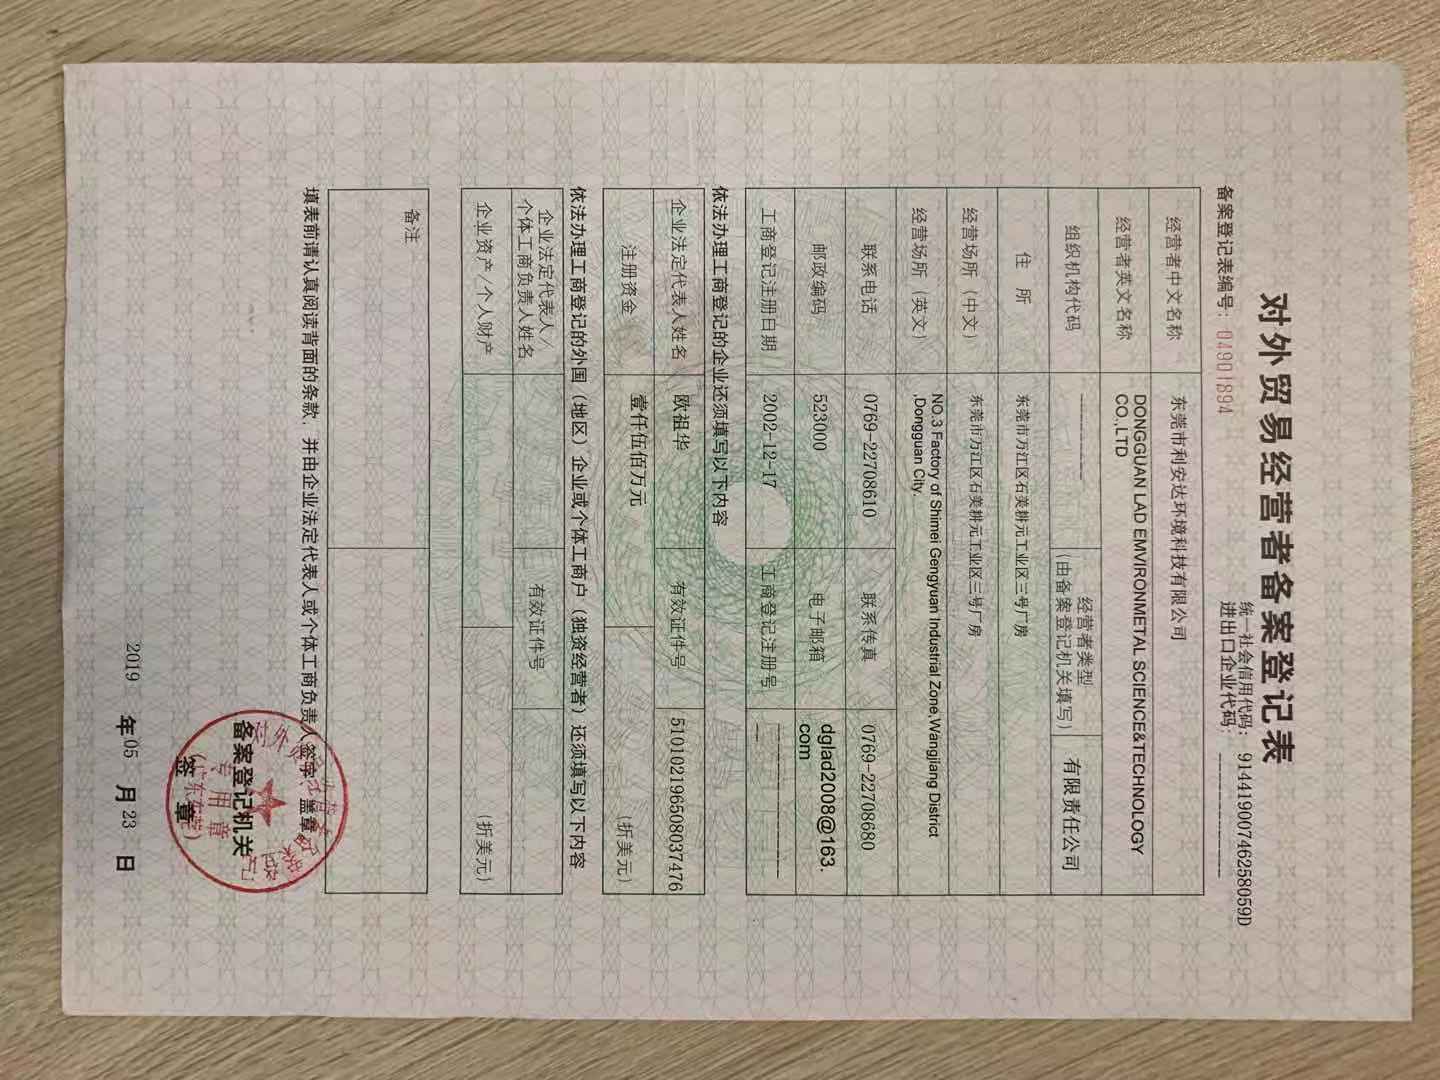 对外贸易经营者备案登记表
备案登记表编号：04901894
统一社会信用代码：91441900746258059D
进出口企业代码：----------
经营者中文名称 东莞市利安达环境科技有限公司
经营者英文名称 DONGGUAN LAD EMVIRONMETAL SCIENCE&TECHNOLOGY
CO.,LTD
组织机构代码 ---------- 经营者类型
（由备案登记机关填写） 有限责任公司
住 所 东莞市万江区石美耕元工业区三号厂房
经营场所（中文） 东莞市万江区石美耕元工业区三号厂房
经营场所（英文） NO.3 Factory of Shimei Gengyuan Industrial Zone,Wangjiang District
,Dongguan City.
联系电话 0769-22708610 联系传真 0769-22708680
邮政编码 523000 电子邮箱 dglad2008@163.
com
工商登记注册日期 2002-12-17 工商登记注册号 ----------
依法办理工商登记的企业还须填写以下内容
企业法定代表人姓名 欧祖华 有效证件号 510102196508037476
注册资金 壹仟伍佰万元 （折美元）
依法办理工商登记的外国（地区）企业或个体工商户（独资经营者）还须填写以下内容
企业法定代表人/
个体工商负责人姓名 有效证件号
企业资产/个人财产 （折美元）
备注
填表前请认真阅读背面的条款，并由企业法定代表人或个体工商负责人签字、盖章。
备案登记机关
签 章
专用章
（广东东莞）
2019 年 05 月 23 日